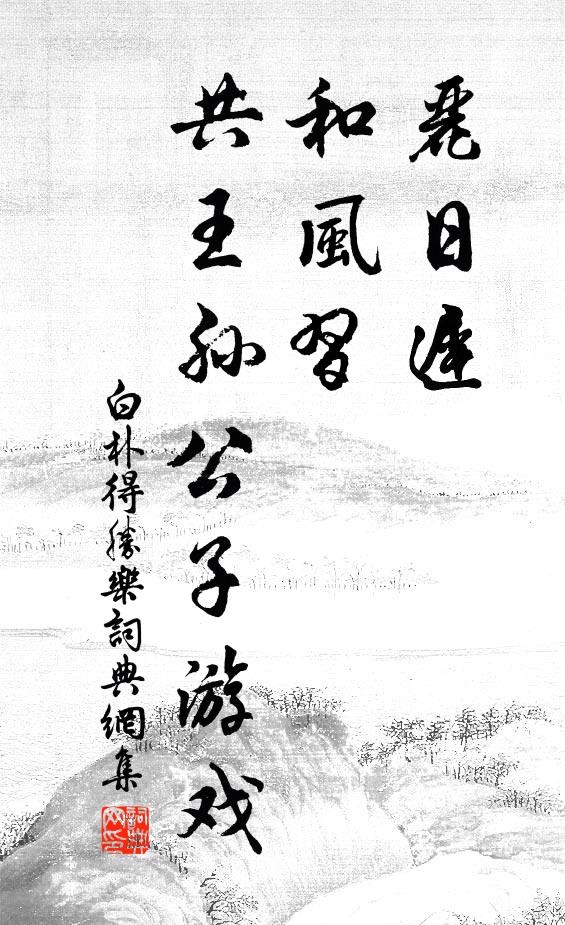 麗日遲
和風習
共王孙公子游戏
白朴得勝樂詞典網集